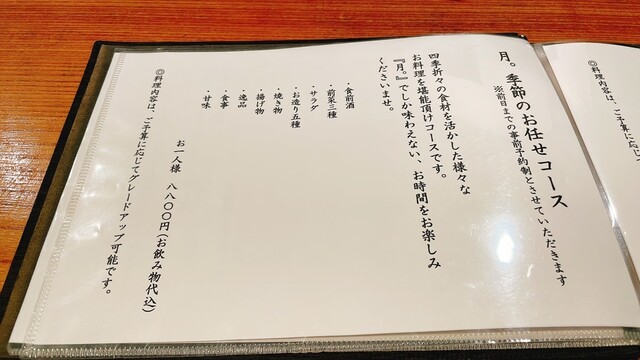 月。季節のお任せコース
※前日までの事前予約制とさせていただきます
四季折々の食材を活かした様々な
お料理を堪能頂けコースです。
『月。』でしか味わえない、お時間をお楽しみ
くださいませ。
・食前酒
・前菜三種
・サラダ
・お造り五種
・焼き物
・揚げ物
・逸品
・食事
・甘味
お一人様 八八〇〇円(お飲み物代込)
◎料理内容は、ご予算に応じてグレードアップ可能です。
◎料理内容は、ご予算に応じ